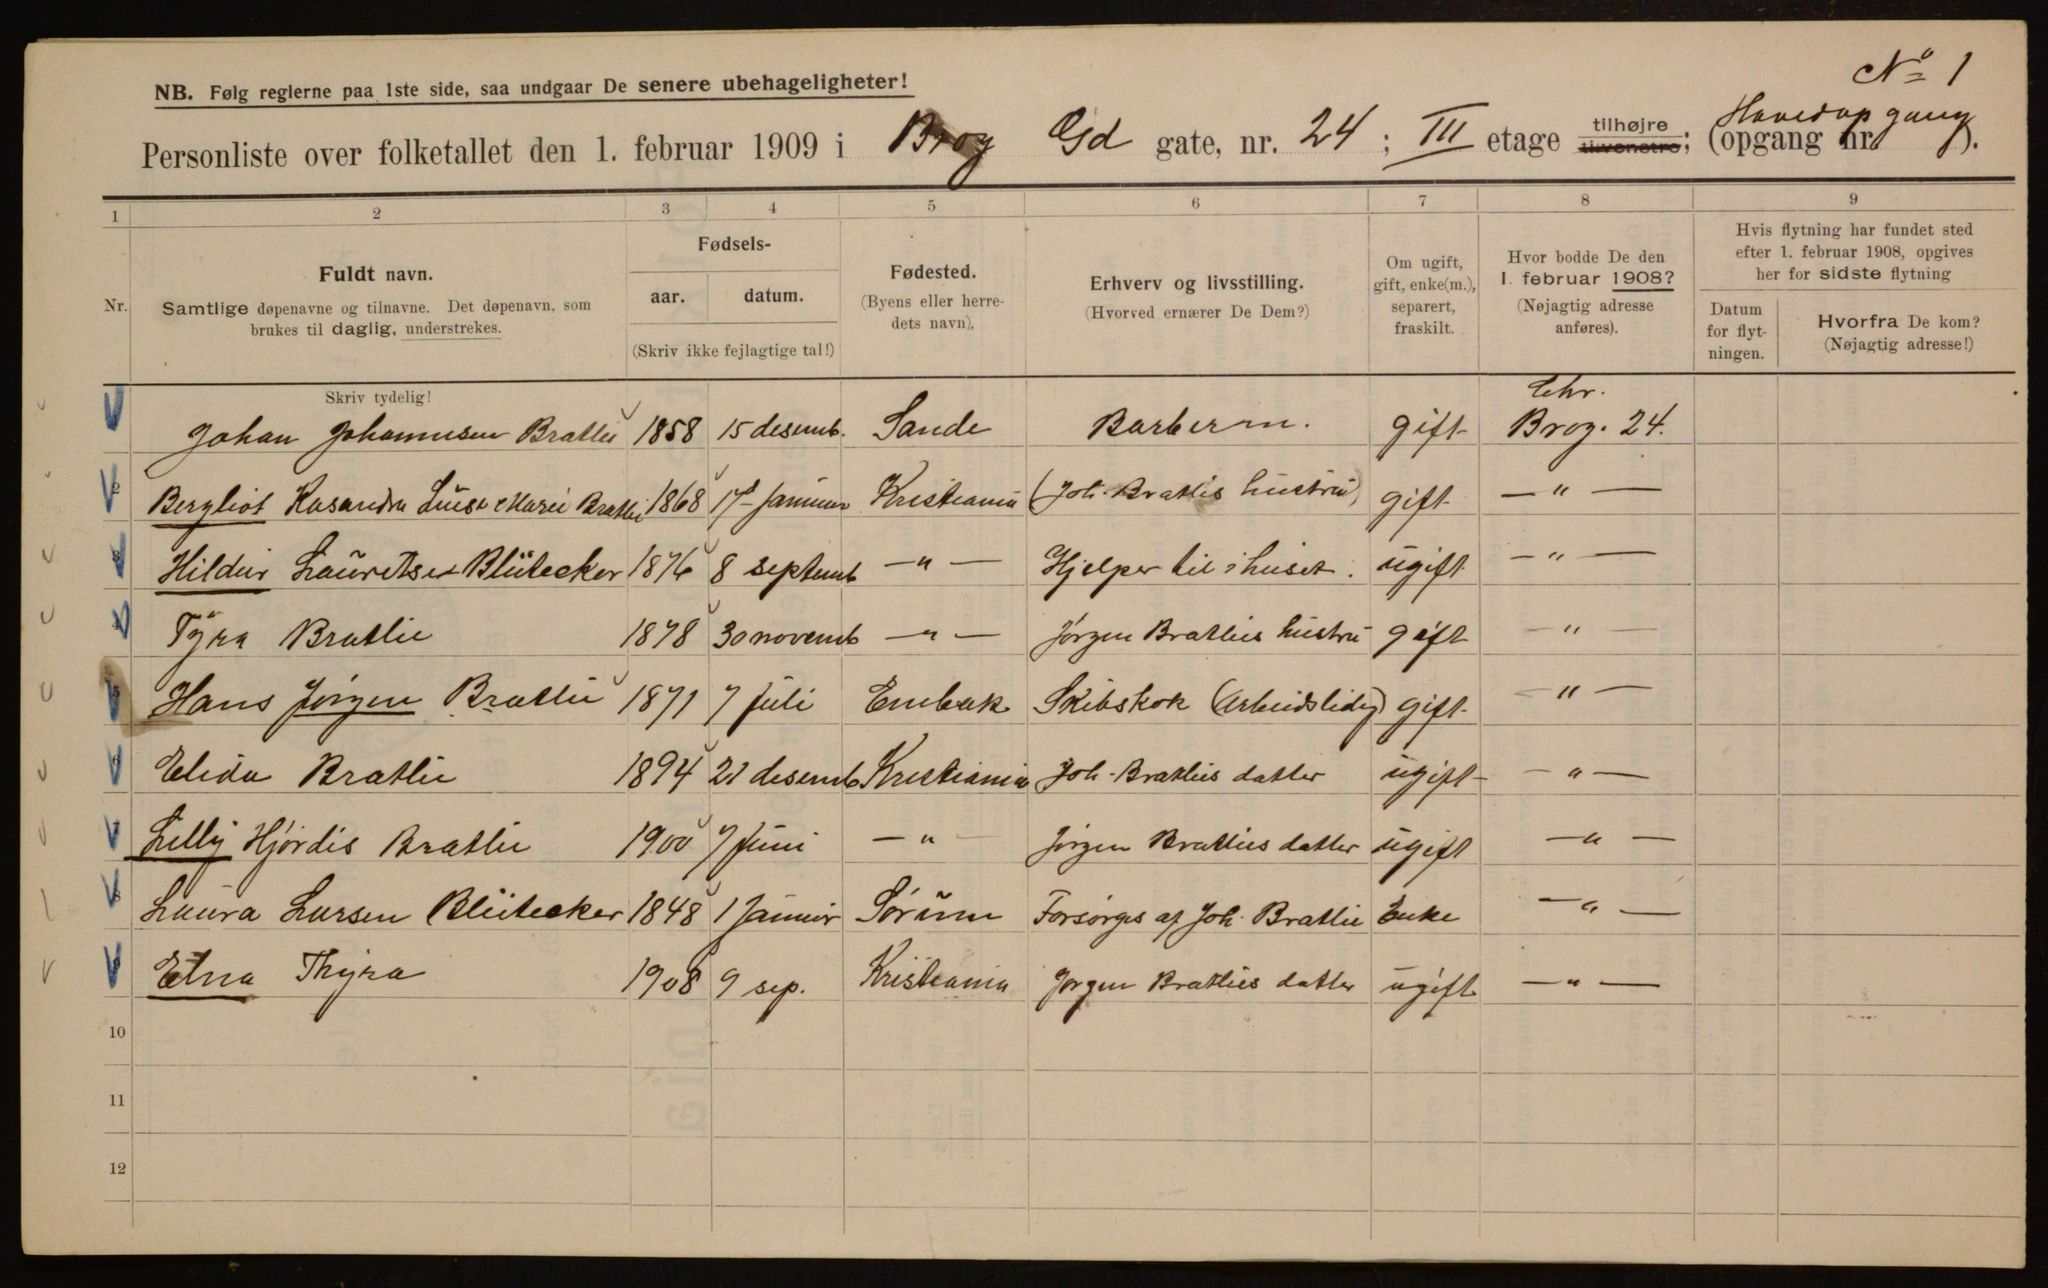 No 1
NB. Følg reglerne paa 1ste side, saa undgaar De senere ubehageligheter!
Personliste over folketallet den 1. februar 1909 i Brog Gd gate, nr. 24; III etage tilhøjre tilvenstre; (opgang nr. Hovedopgang).
1 2 3 4 5 6 7 8 9
Nr.
Fuldt navn.
Samtlige døpenavne og tilnavne. Det døpenavn, som
brukes til daglig, understrekes.
Fødsels-
aar. datum.
(Skriv ikke fejlagtige tal!)
Fødested.
(Byens eller herre-
dets navn).
Erhverv og livsstilling.
(Hvorved ernærer De Dem?)
Om ugift,
gift, enke(m.),
separert,
fraskilt.
Hvor bodde De den
1. februar 1908?
(Nøjagtig adresse
anføres).
Hvis flytning har fundet sted
efter 1. februar 1908, opgives
her for sidste flytning
Datum
for flyt-
ningen.
Hvorfra De kom?
(Nøjagtig adresse!)
Skriv tydelig!
Chr.
Johan Johannesen Bratlie 1858 15 desemb. Sande Barberm. gift Brog. 24.
2 Bergliot Kasandra Luise Marie Bratlie 1868 17d Januar Kristiania (Joh. Bratlis hustru) gift — " —
3 Hildur Lauretse Blütecker 1876 8 septemb — " — Hjelper til i huset. ugift — " —
4 Tyra Bratlie 1878 30 novemb — " — Jørgen Bratlies hustru gift — " —
5 Hans Jørgen Bratlie 1871 7 Juli Enebak Skibskok (Arbeidsledig) gift — " —
6 Elida Bratlie 1894 21 desemb Kristiania Joh. Bratlies datter ugift — " —
7 Lilly Hjørdis Bratlie 1900 7 Juni — " — Jørgen Bratlies datter ugift — " —
8 Laura Larsen Blütecker 1848 1 Januar Sørum Forsørges af Joh. Bratlie Enke — " —
9 Edna Thyra 1908 9 sep. Kristiania Jørgen Bratlies datter ugift — " —
10
11
12